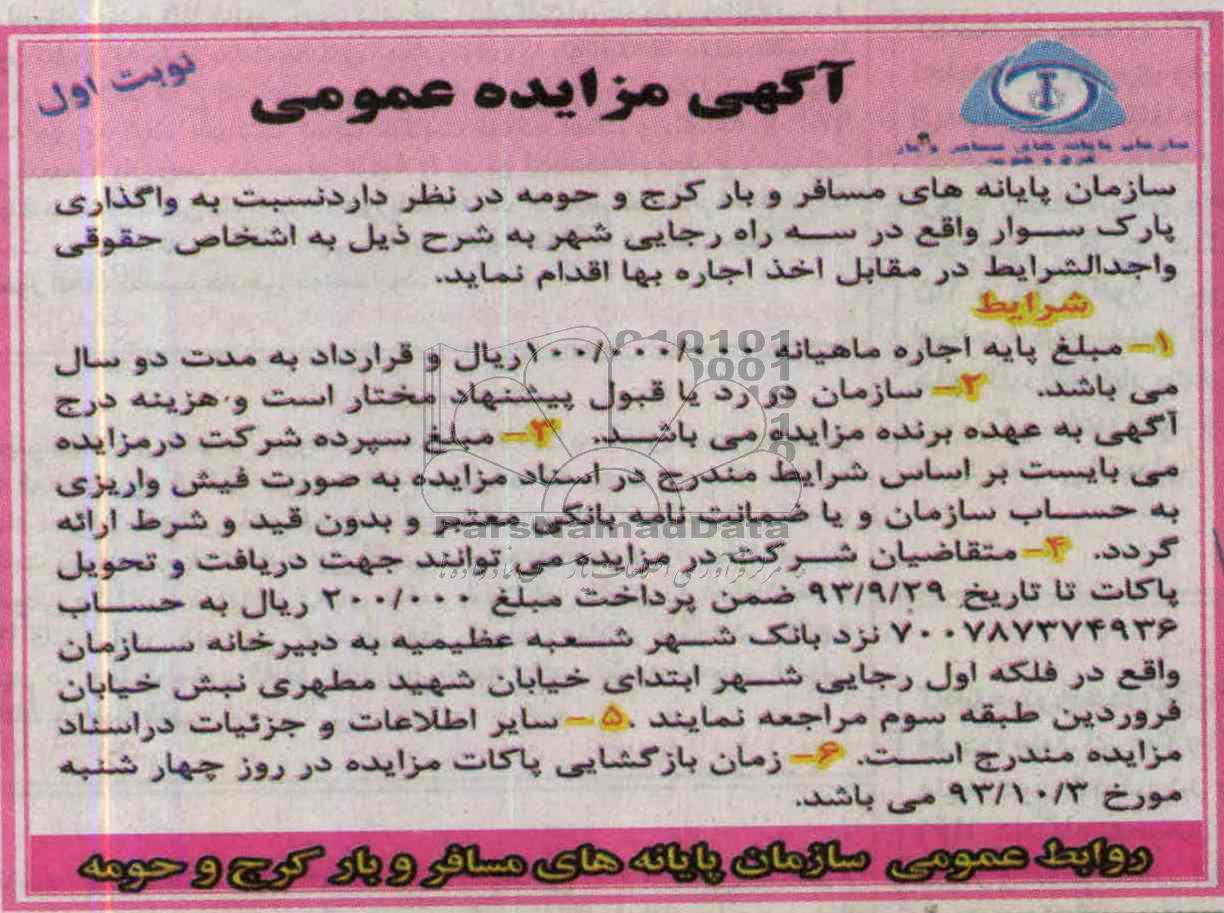 نوبت اول
آگهی مزایده عمومی
سازمان پایانه های مسافر و بار
کرج و حومه
سازمان پایانه های مسافر و بار کرج و حومه در نظر داردنسبت به واگذاری
پارک سوار واقع در سه راه رجایی شهر به شرح ذیل به اشخاص حقوقی
واجدالشرایط در مقابل اخذ اجاره بها اقدام نماید.
شرایط
۱- مبلغ پایه اجاره ماهیانه ۱۰۰/۰۰۰/۰۰۰ریال و قرارداد به مدت دو سال
می باشد. ۲- سازمان در رد یا قبول پیشنهاد مختار است و هزینه درج
آگهی به عهده برنده مزایده می باشد. ۳- مبلغ سپرده شرکت درمزایده
می بایست بر اساس شرایط مندرج در اسناد مزایده به صورت فیش واریزی
به حساب سازمان و یا ضمانت نامه بانکی معتبر و بدون قید و شرط ارائه
گردد. ۴- متقاضیان شرکت در مزایده می توانند جهت دریافت و تحویل
پاکات تا تاریخ ۹۳/۹/۲۹ ضمن پرداخت مبلغ ۲۰۰/۰۰۰ ریال به حساب
۷۰۰۷۸۷۳۷۴۹۳۶ نزد بانک شهر شعبه عظیمیه به دبیرخانه سازمان
واقع در فلکه اول رجایی شهر ابتدای خیابان شهید مطهری نبش خیابان
فروردین طبقه سوم مراجعه نمایند .۵- سایر اطلاعات و جزئیات دراسناد
مزایده مندرج است. ۶- زمان بازگشایی پاکات مزایده در روز چهار شنبه
مورخ ۹۳/۱۰/۳ می باشد.
روابط عمومی سازمان پایانه های مسافر و بار کرج و حومه
ParsNamadData